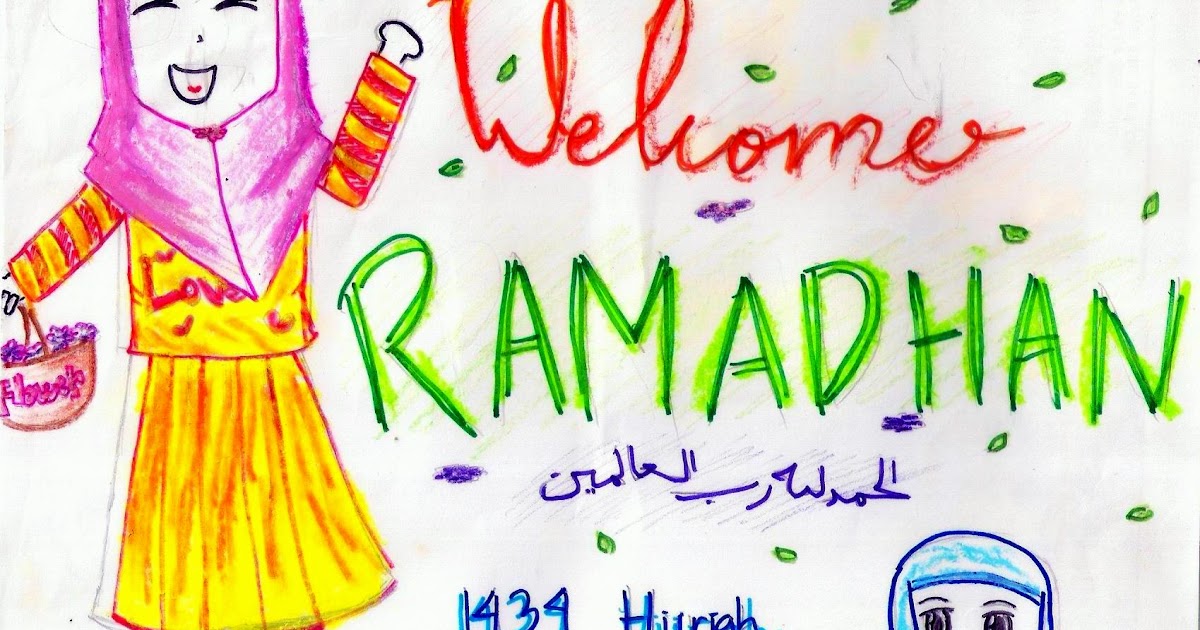 Welcome
RAMADHAN
Love
Flower
الحمد لله رب العالمين
1434 Hijriah